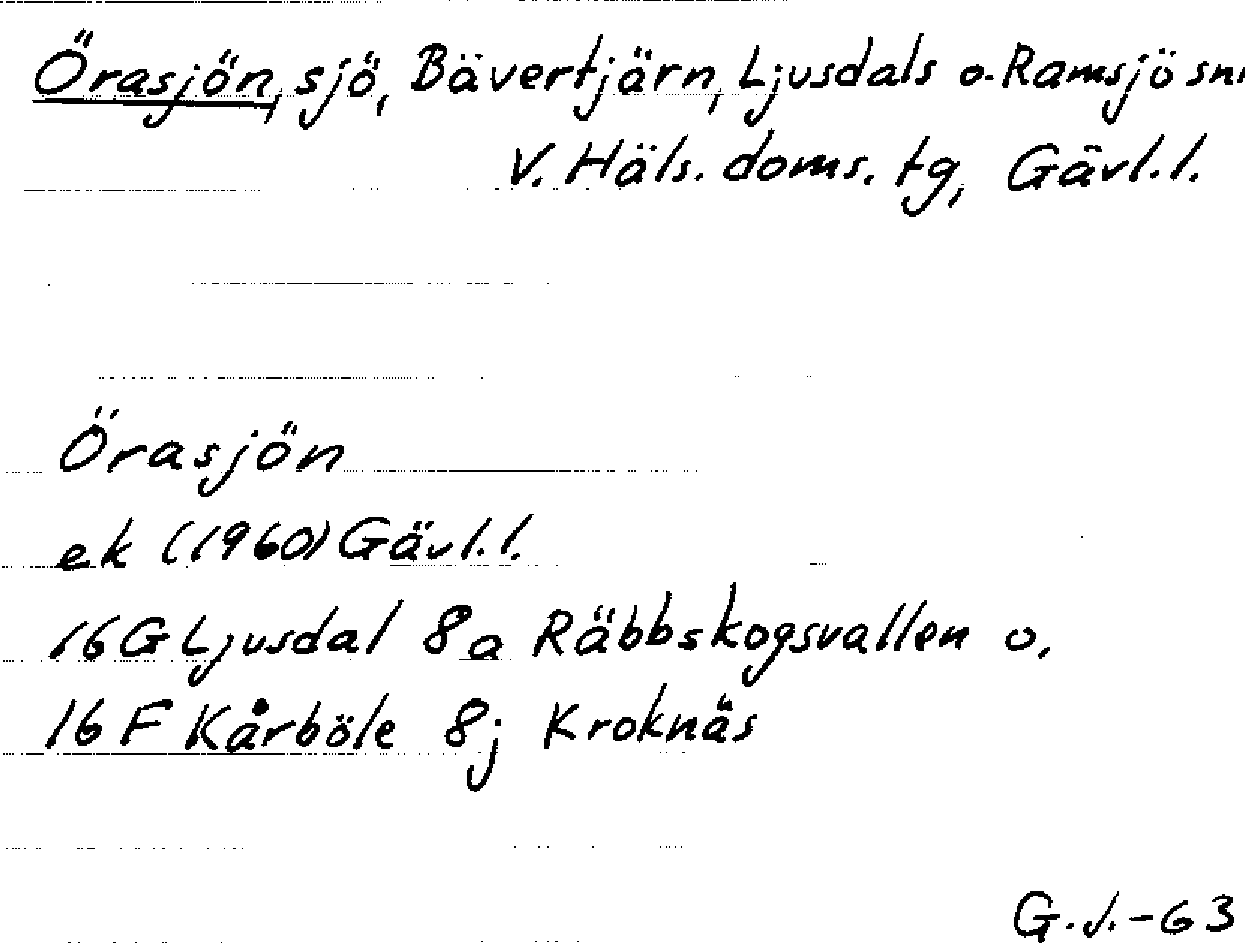 Örasjön, sjö, Bävertjärn, Ljusdals o. Ramsjö snr
V. Häls. doms. tg, Gävl.l.
Örasjön
ek (1960) Gävl.l.
16G Ljusdal 8a Räbbskogsvallen o,
16F Kårböle 8j Kroknäs
G.J.-63